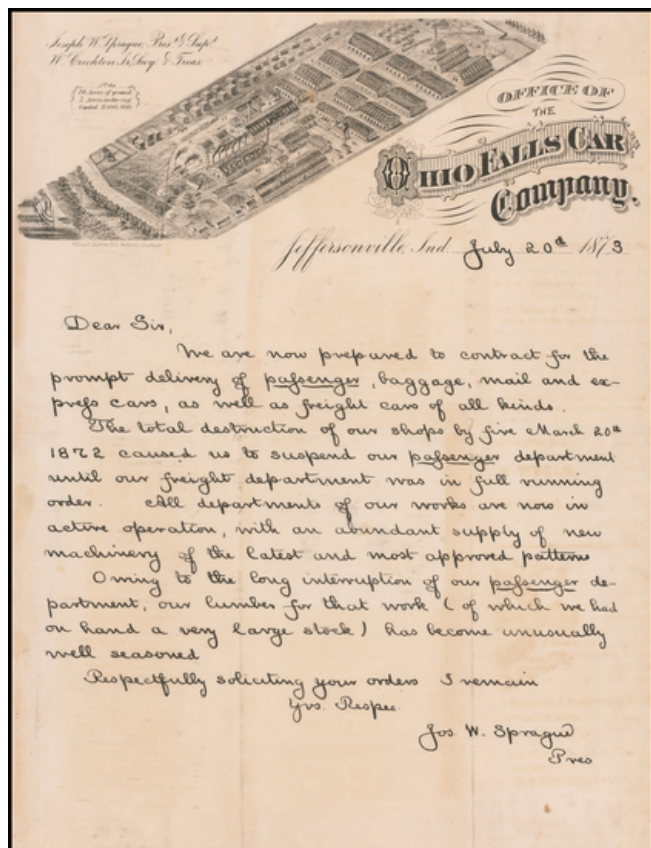 Joseph W. Sprague, Pres.t & Sup.t
W. Crichton Jr, Secy. & Treas.
OFFICE OF
THE
OHIO FALLS CAR
Company.
Jeffersonville, Ind. July 20th 1873
Dear Sir,
We are now prepared to contract for the
prompt delivery of passenger, baggage, mail and ex-
press cars, as well as freight cars of all kinds.
The total destruction of our shops by fire March 20th
1872 caused us to suspend our passenger department
until our freight department was in full running
order. All departments of our works are now in
active operation, with an abundant supply of new
machinery of the latest and most approved patterns
Owing to the long interruption of our passenger de-
partment, our lumber for that work (of which we had
on hand a very large stock) has become unusually
well seasoned
Respectfully soliciting your orders I remain
Yrs. Respec.
Jos. W. Sprague
Pres